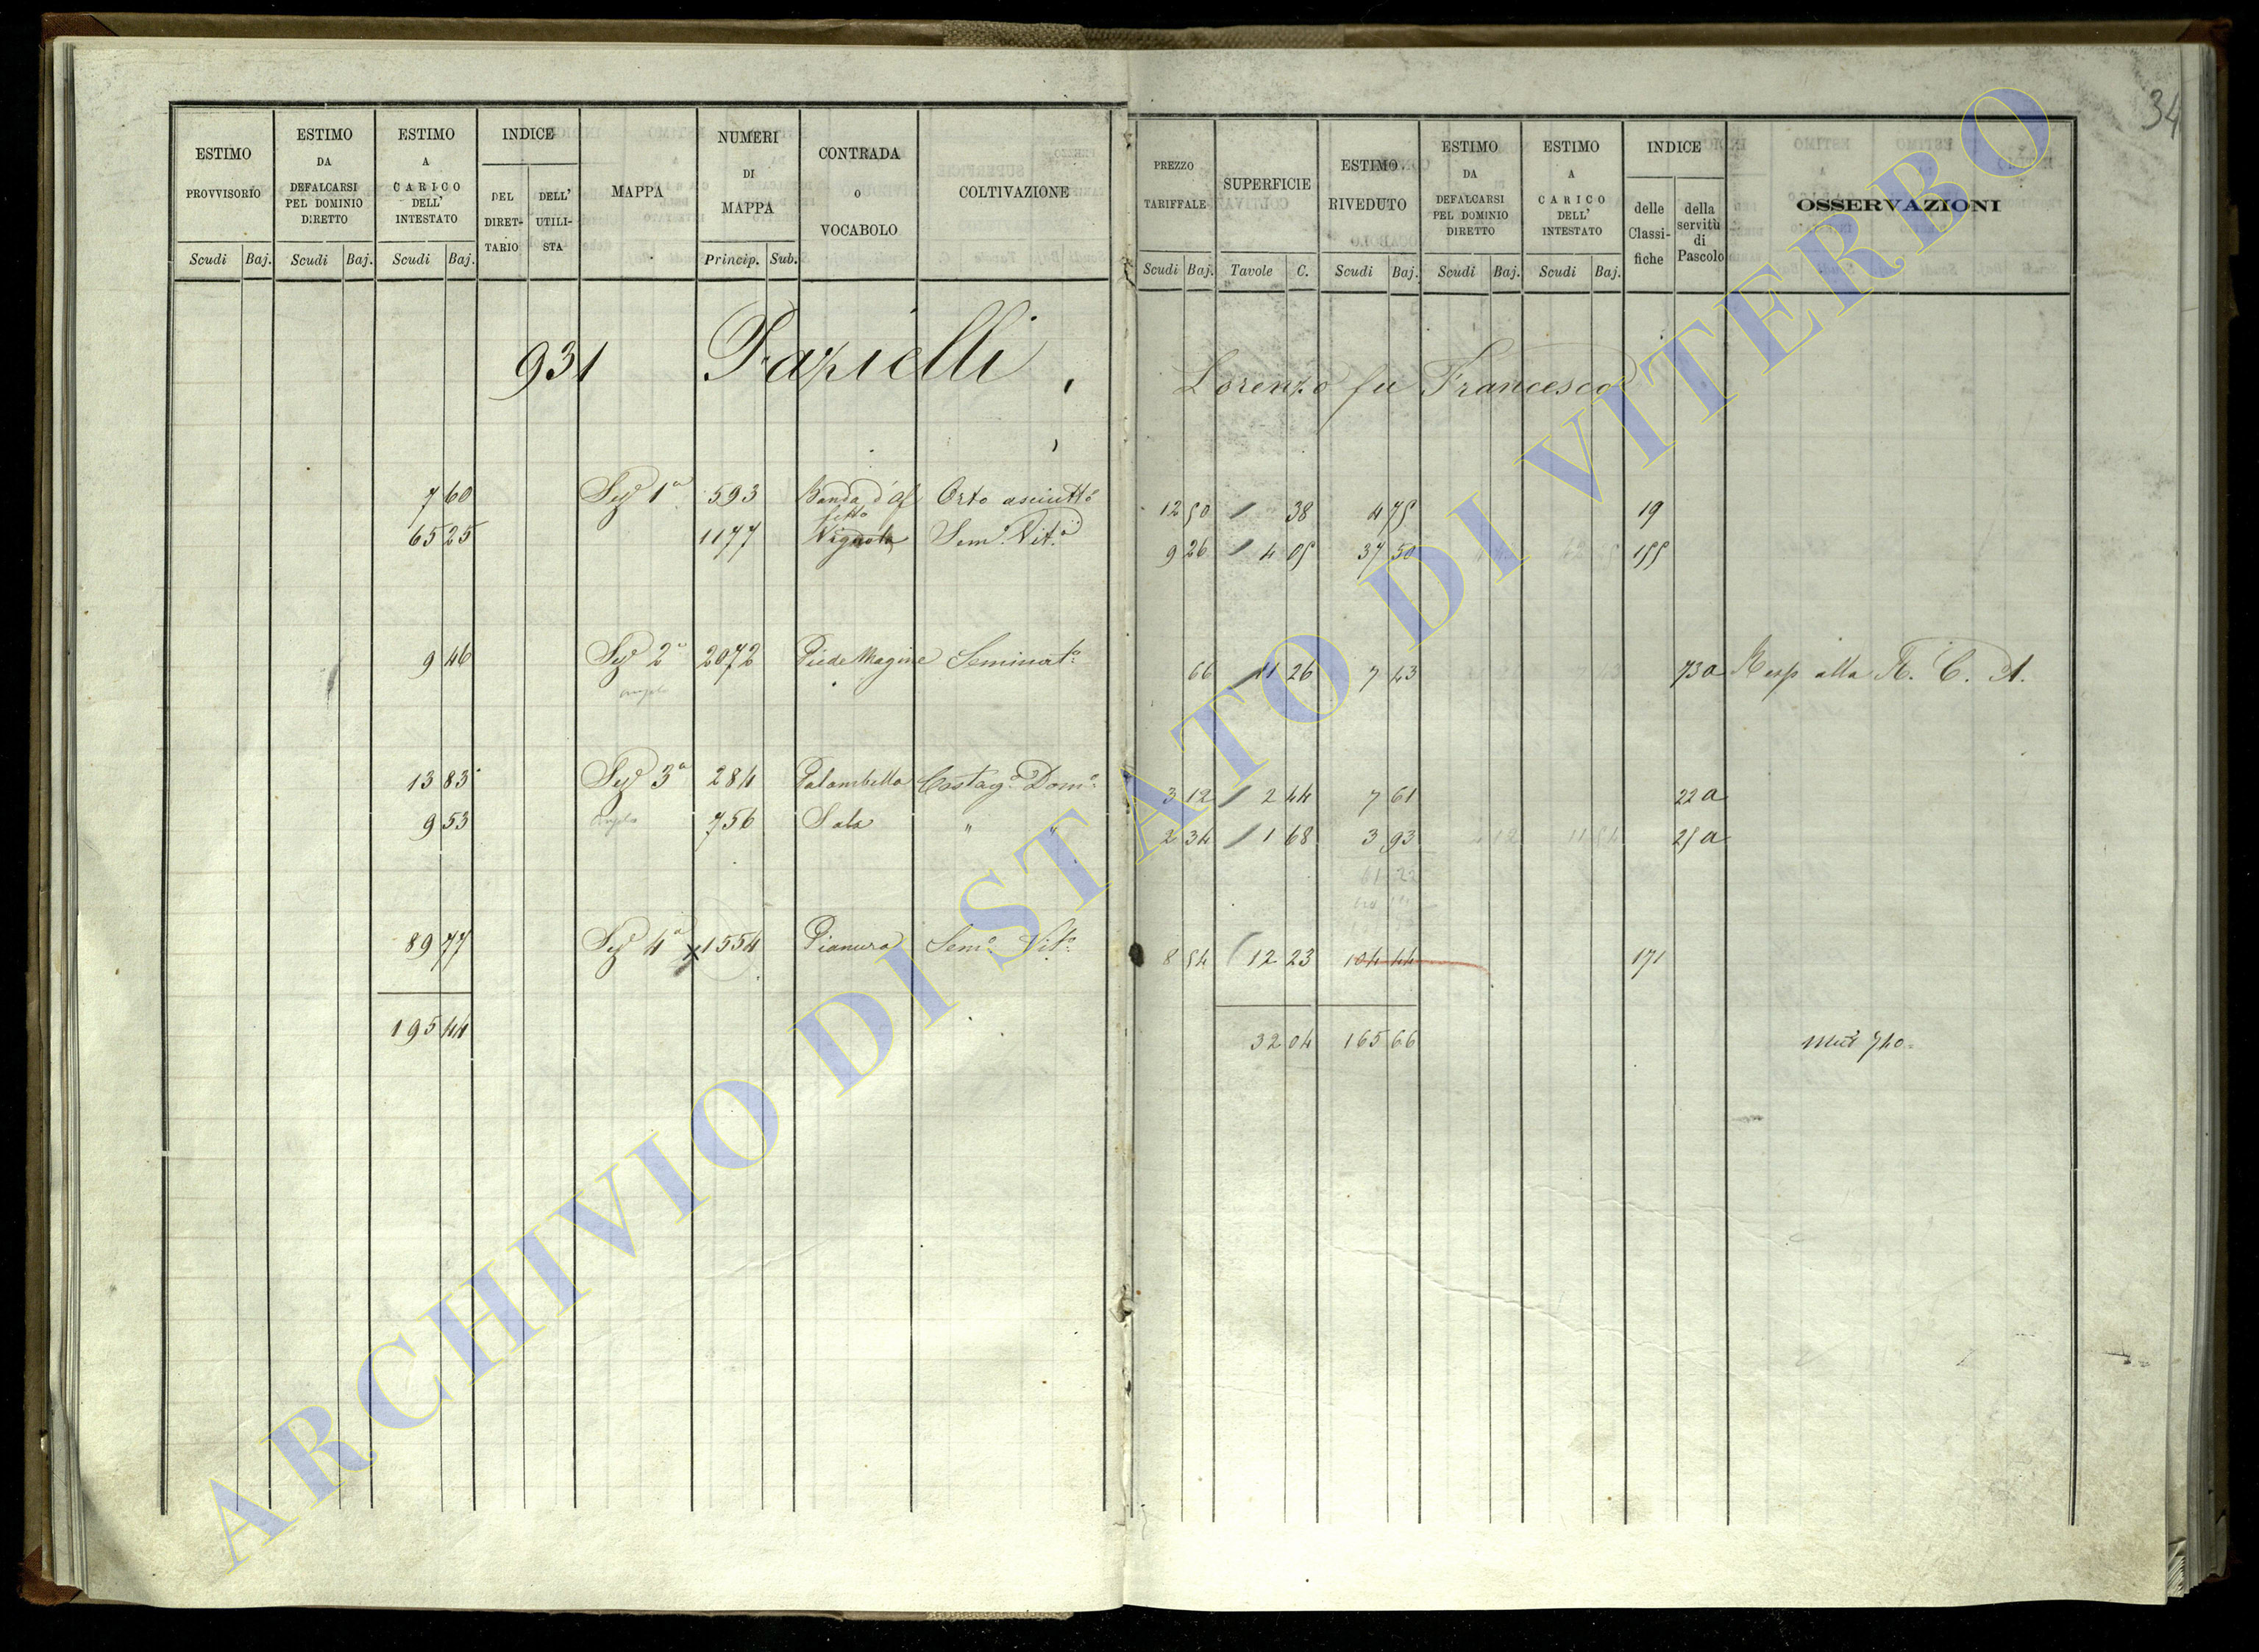 34
ESTIMO PROVVISORIO
ESTIMO DA DEFALCARSI PEL DOMINIO DIRETTO
ESTIMO A CARICO DELL' INTESTATO
INDICE
DEL DIRET-TARIO
DELL' UTILI-STA
MAPPA
NUMERI DI MAPPA
CONTRADA O VOCABOLO
COLTIVAZIONE
Scudi Baj. Scudi Baj. Scudi Baj. Princip. Sub.
PREZZO TARIFFALE
SUPERFICIE
ESTIMO RIVEDUTO
ESTIMO DA DEFALCARSI PEL DOMINIO DIRETTO
ESTIMO A CARICO DELL' INTESTATO
INDICE
delle Classi-fiche
della servitù di Pascolo
OSSERVAZIONI
Scudi Baj. Tavole C. Scudi Baj. Scudi Baj. Scudi Baj.
931 Fazielli, Lorenzo fu Francesco
7 60 Sez 1a 593 Orto asciutto 12 50 38 4 75 19
65 25 1177 Vignola Sem. Vit.o 9 26 4 05 37 50 155
9 46 Sez 2a 2072 Piede Magine Seminat.o 66 11 26 7 43 73a Resp alla R. C. A.
13 83 Sez 3a 284 Palombella Castag.o Dom.o 3 12 2 44 7 61 22a
9 53 756 Sala " " 2 34 1 68 3 93 25a
61 22
89 77 Sez 4a x 1554 Pianura Sem.o Vit.o 8 54 12 23 104 44 171
195 44 32 04 165 66 740
ARCHIVIO DI STATO DI VITERBO